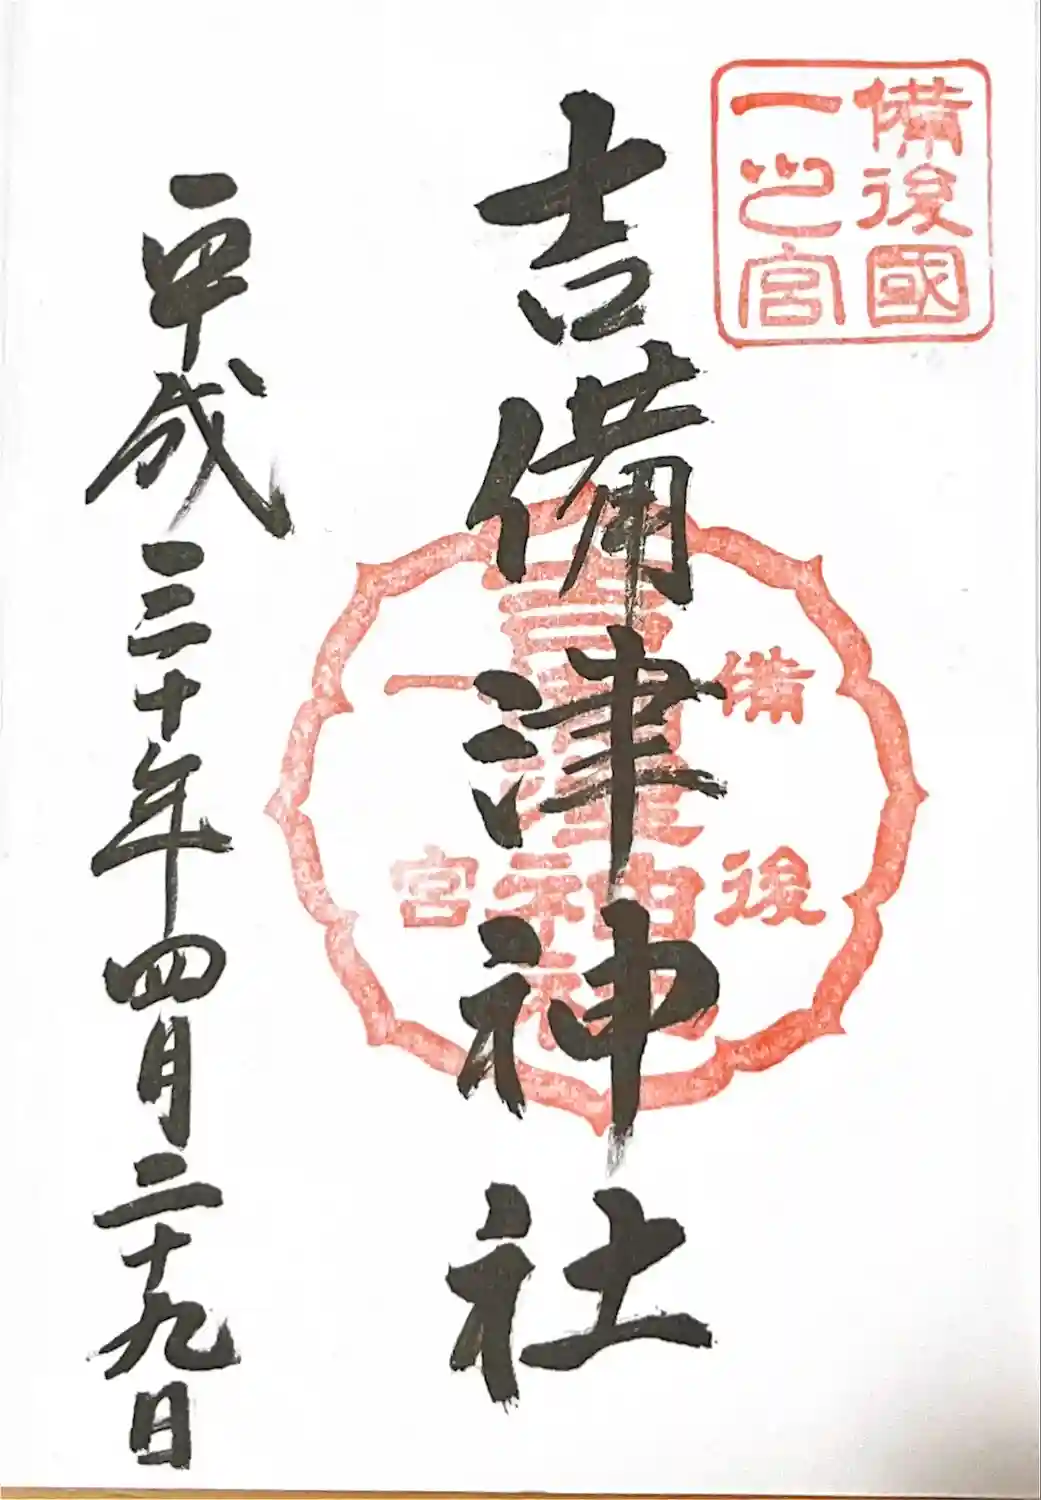 備後國
一之宮
吉備津神社
備後
吉備津神社
一宮
平成三十年四月二十九日